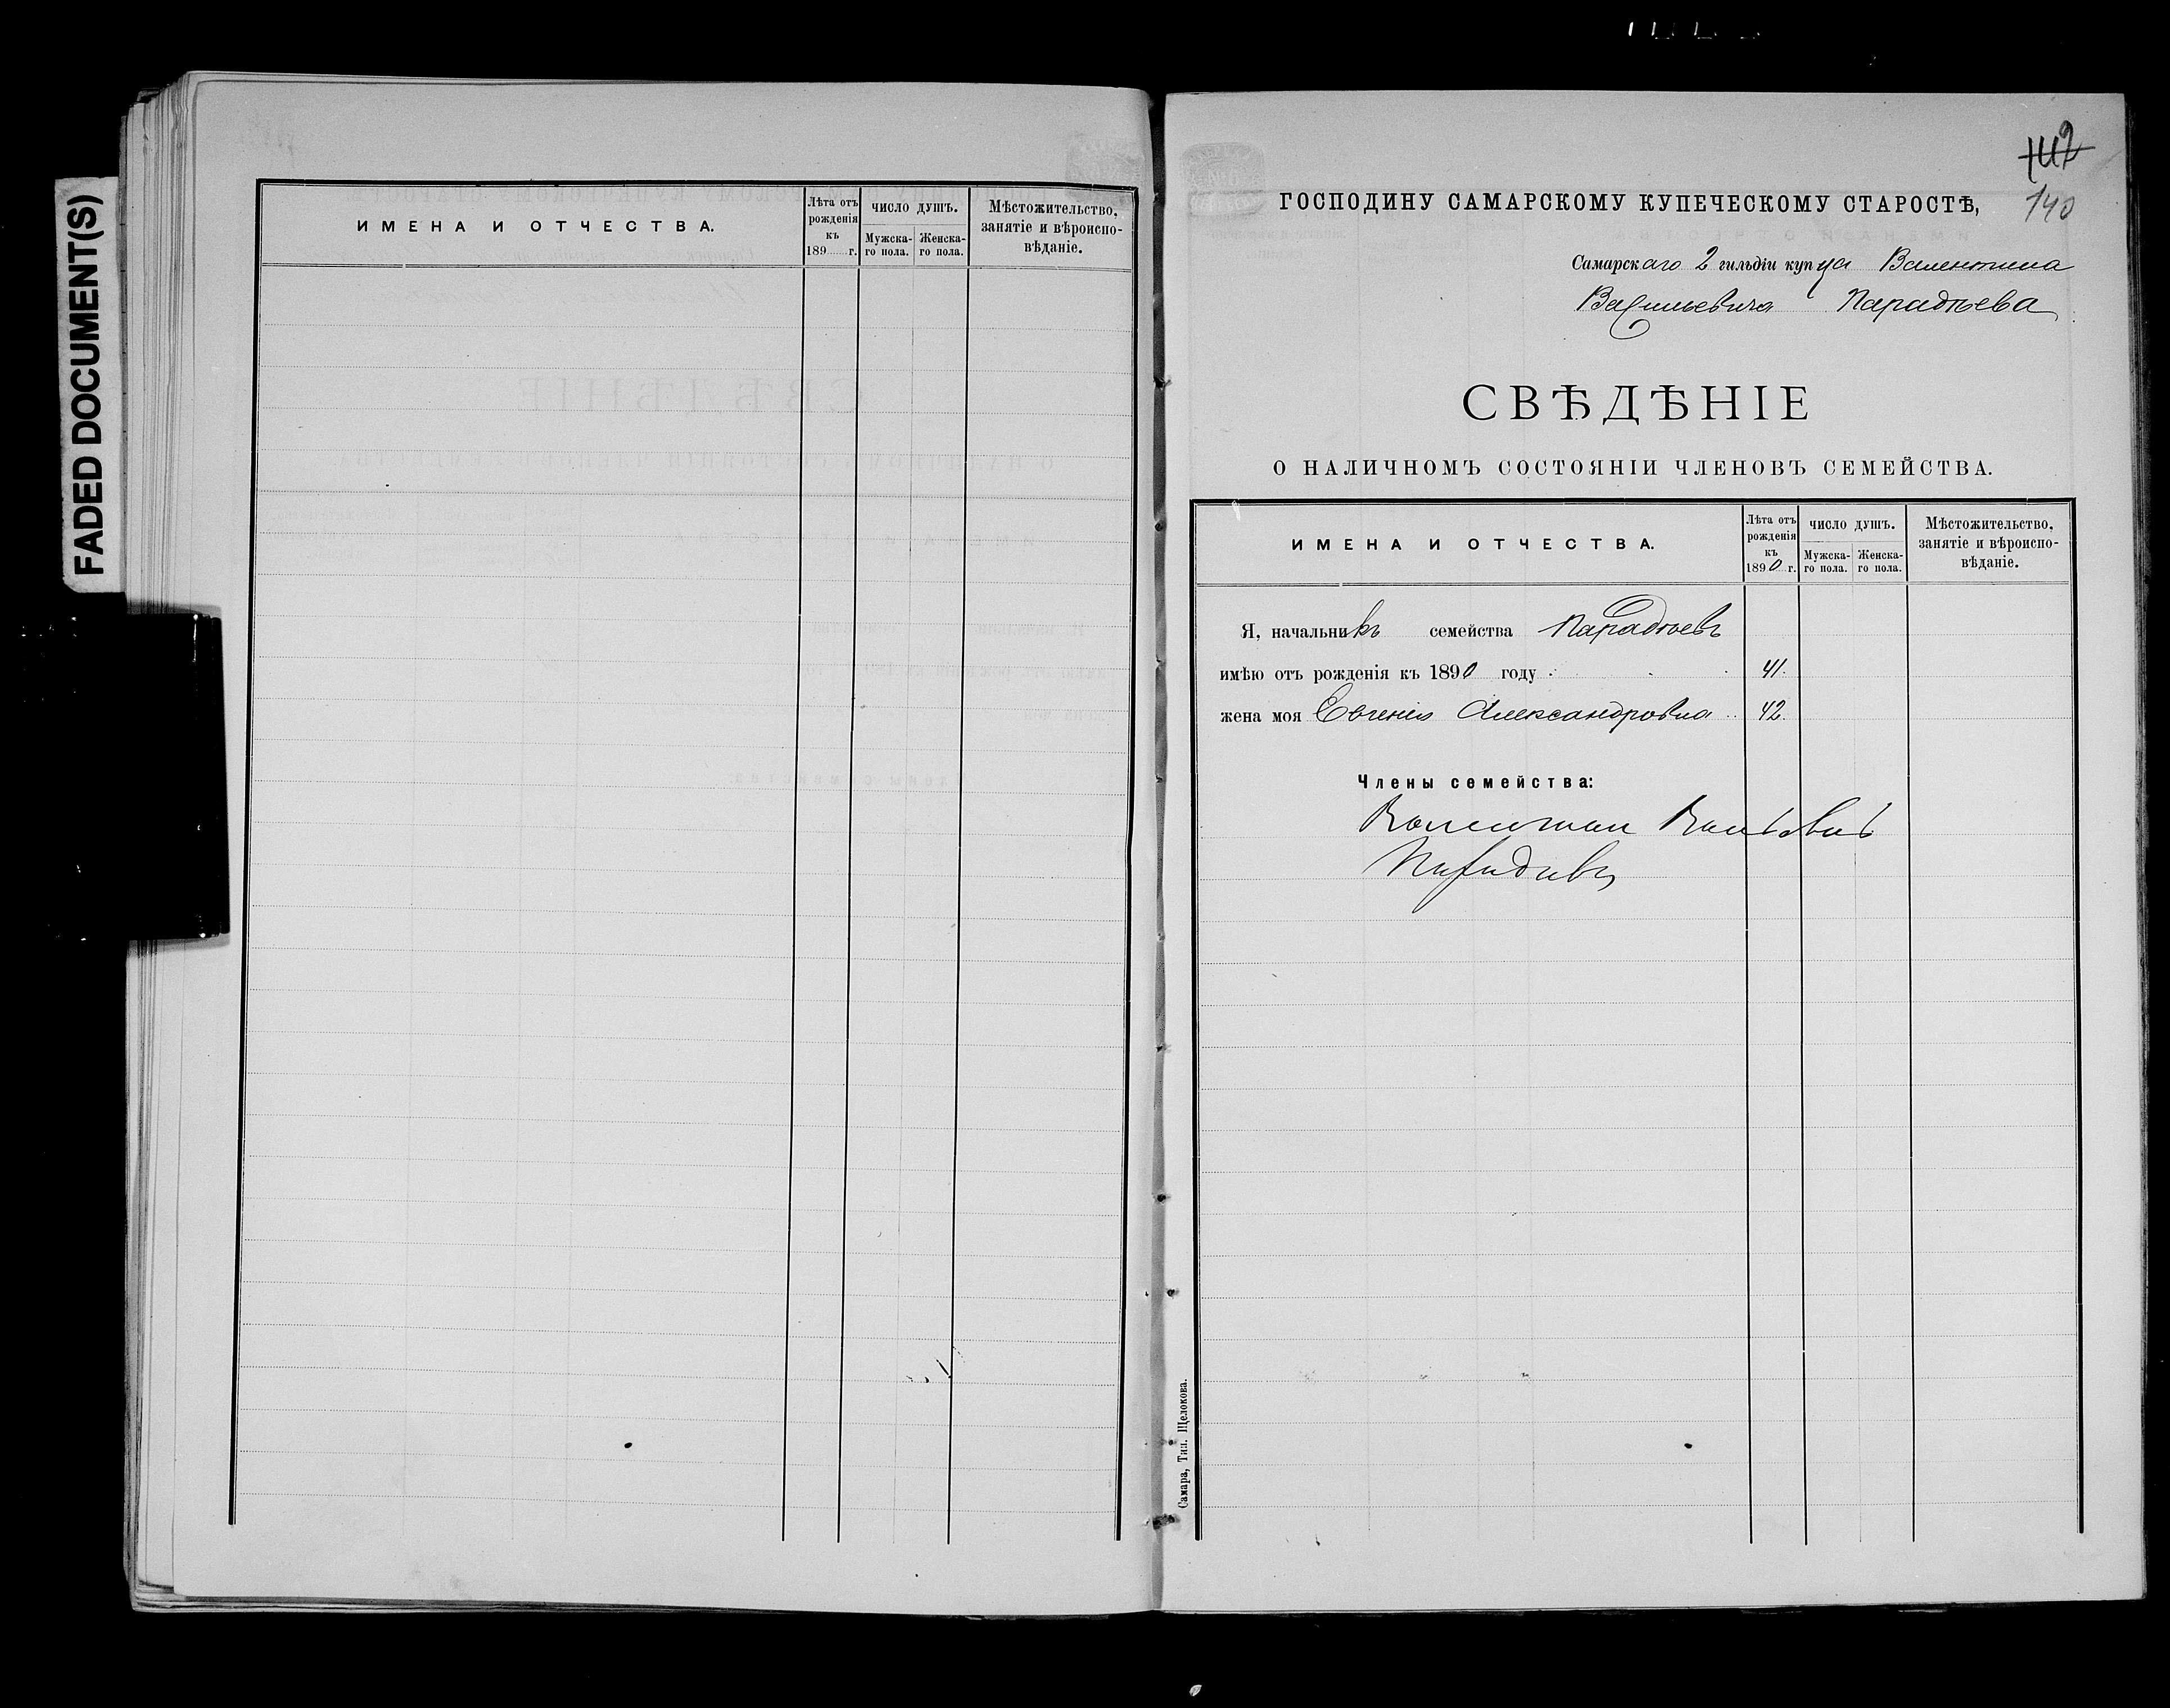 FADED DOCUMENT(S)
ИМЕНА И ОТЧЕСТВА.
Лѣта отъ рожденія къ 189 г.
ЧИСЛО ДУШЪ.
Мужска-го пола.
Женска-го пола.
Мѣстожительство, занятіе и вѣроиспо-вѣданіе.
142
140
ГОСПОДИНУ САМАРСКОМУ КУПЕЧЕСКОМУ СТАРОСТѢ,
Самарскаго 2 гильдіи купца Валентина
Васильевича Парадѣева
СВѢДѢНІЕ
О НАЛИЧНОМЪ СОСТОЯНІИ ЧЛЕНОВЪ СЕМЕЙСТВА.
ИМЕНА И ОТЧЕСТВА.
Лѣта отъ рожденія къ 1890 г.
ЧИСЛО ДУШЪ.
Мужска-го пола.
Женска-го пола.
Мѣстожительство, занятіе и вѣроиспо-вѣданіе.
Я, начальникъ семейства Парадѣевъ
имѣю отъ рожденія къ 1890 году 41.
жена моя Евгенія Александровна 42.
Члены семейства:
Валентин
Самара, Тип. Щелокова.